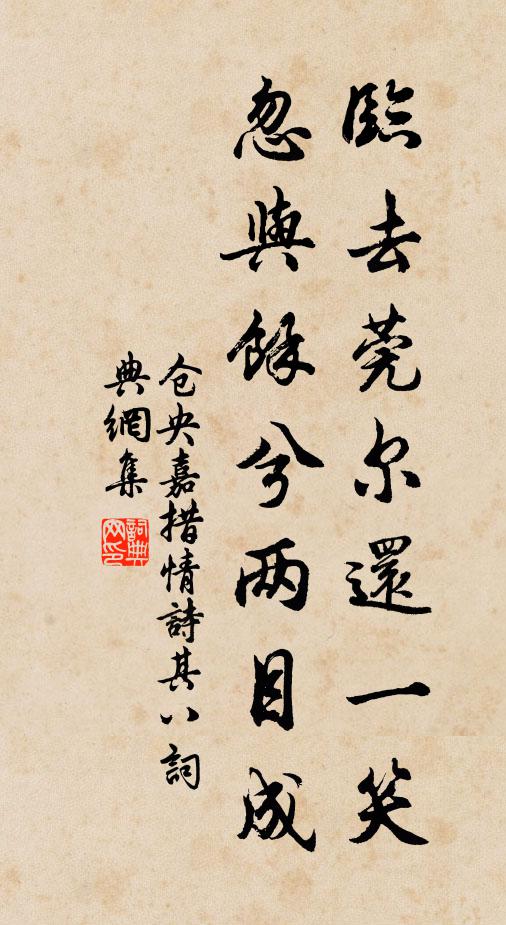 臨去莞尔還一笑
忽與餘兮两目成
仓央嘉措情詩其八詞
典網集
詞典
网印